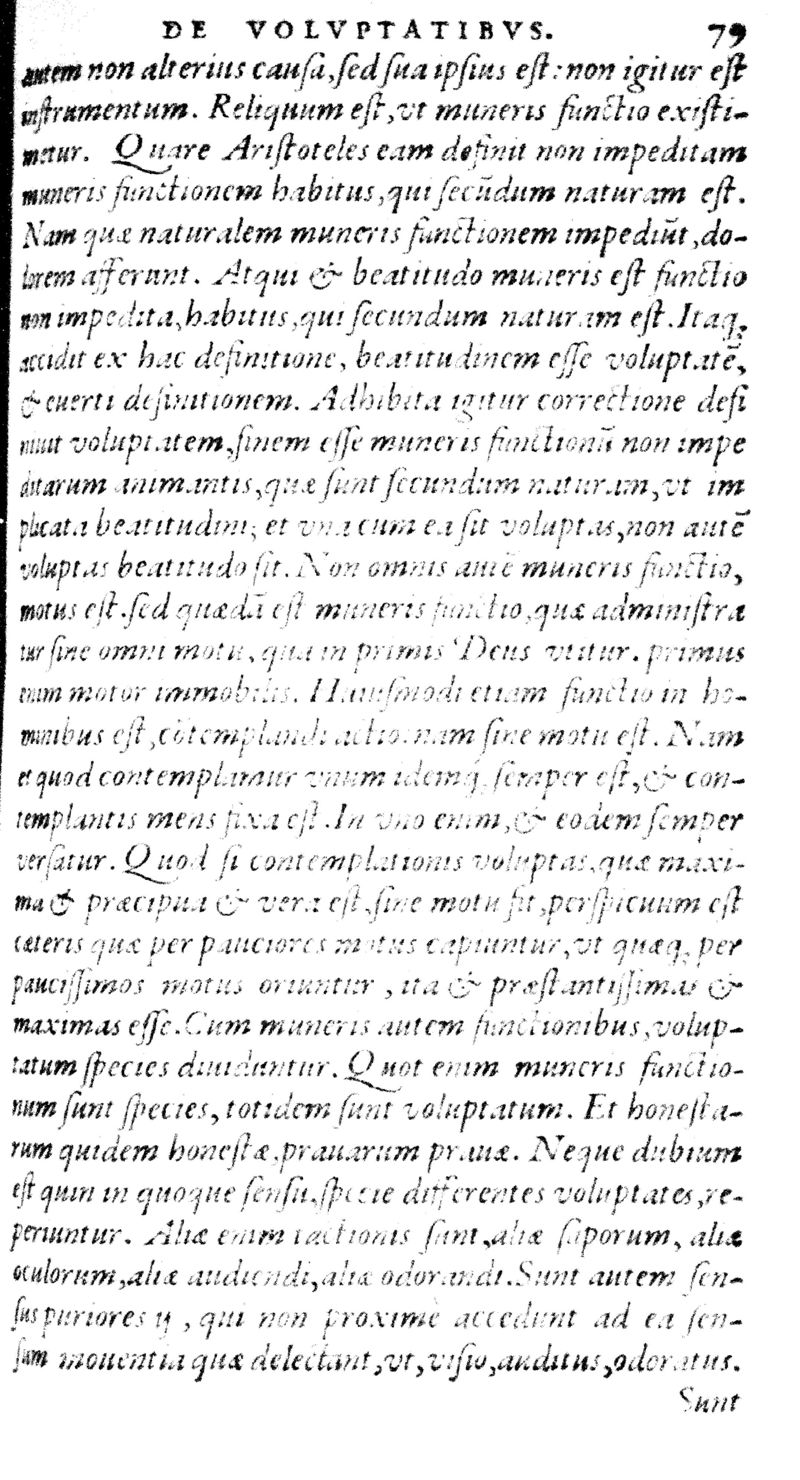 DE VOLVPTATIBVS. 79
autem non alterius causa, sed sua ipsius est: non igitur est
instrumentum. Reliquum est, vt muneris functio existi-
metur. Quare Aristoteles eam definit non impeditam
muneris functionem habitus, qui secūdum naturam est.
Nam quæ naturalem muneris functionem impediūt, do-
lorem afferunt. Atqui & beatitudo muneris est functio
non impedita, habitus, qui secundum naturam est. Itaq;
accidit ex hac definitione, beatitudinem esse voluptatē,
& euerti definitionem. Adhibita igitur correctione defi
niuit voluptatem, finem esse muneris functionū non impe
ditarum animantis, quæ sunt secundum naturam, vt im
plicata beatitudini; et vna cum ea sit voluptas, non autē
voluptas beatitudo sit. Non omnis autē muneris functio,
motus est. sed quædā est muneris functio, quæ administra
tur sine omni motu, qua in primis Deus vtitur. primus
enim motor immobilis. Huiusmodi etiam functio in ho-
minibus est, cōtemplandi actio: nam sine motu est. Nam
et quod contemplamur vnum idemq; semper est, & con-
templantis mens fixa est. In vno enim, & eodem semper
versatur. Quod si contemplationis voluptas, quæ maxi-
ma & præcipua & vera est, sine motu fit, perspicuum est
cæteris quæ per pauciores motus capiuntur, vt quæq; per
paucissimos motus oriuntur, ita & præstantissimas &
maximas esse. Cum muneris autem functionibus, volup-
tatum species diuiduntur. Quot enim muneris functio-
num sunt species, totidem sunt voluptatum. Et honesta-
rum quidem honestæ, prauarum prauæ. Neque dubium
est quin in quoque sensu, specie differentes voluptates, re-
periuntur. Aliæ enim tactionis sunt, aliæ saporum, aliæ
oculorum, aliæ audiendi, aliæ odorandi. Sunt autem sen-
sus puriores ij, qui non proximè accedunt ad ea sen-
sum mouentia quæ delectant, vt, visio, auditus, odoratus.
Sunt